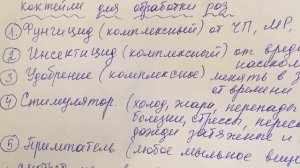 коктейли для обработки роз
① Фунгицид (комплексный) от ЧП, МР,
② Инсектицид (комплексный) от вред
насеком
③ Удобрение (комплексное менять в з
от времени
④ Стимулятор. (холод, жара, перепады
болезни, стрессы, перес
дожди затяжные и
⑤ Прилипатель (любое мыльное веще